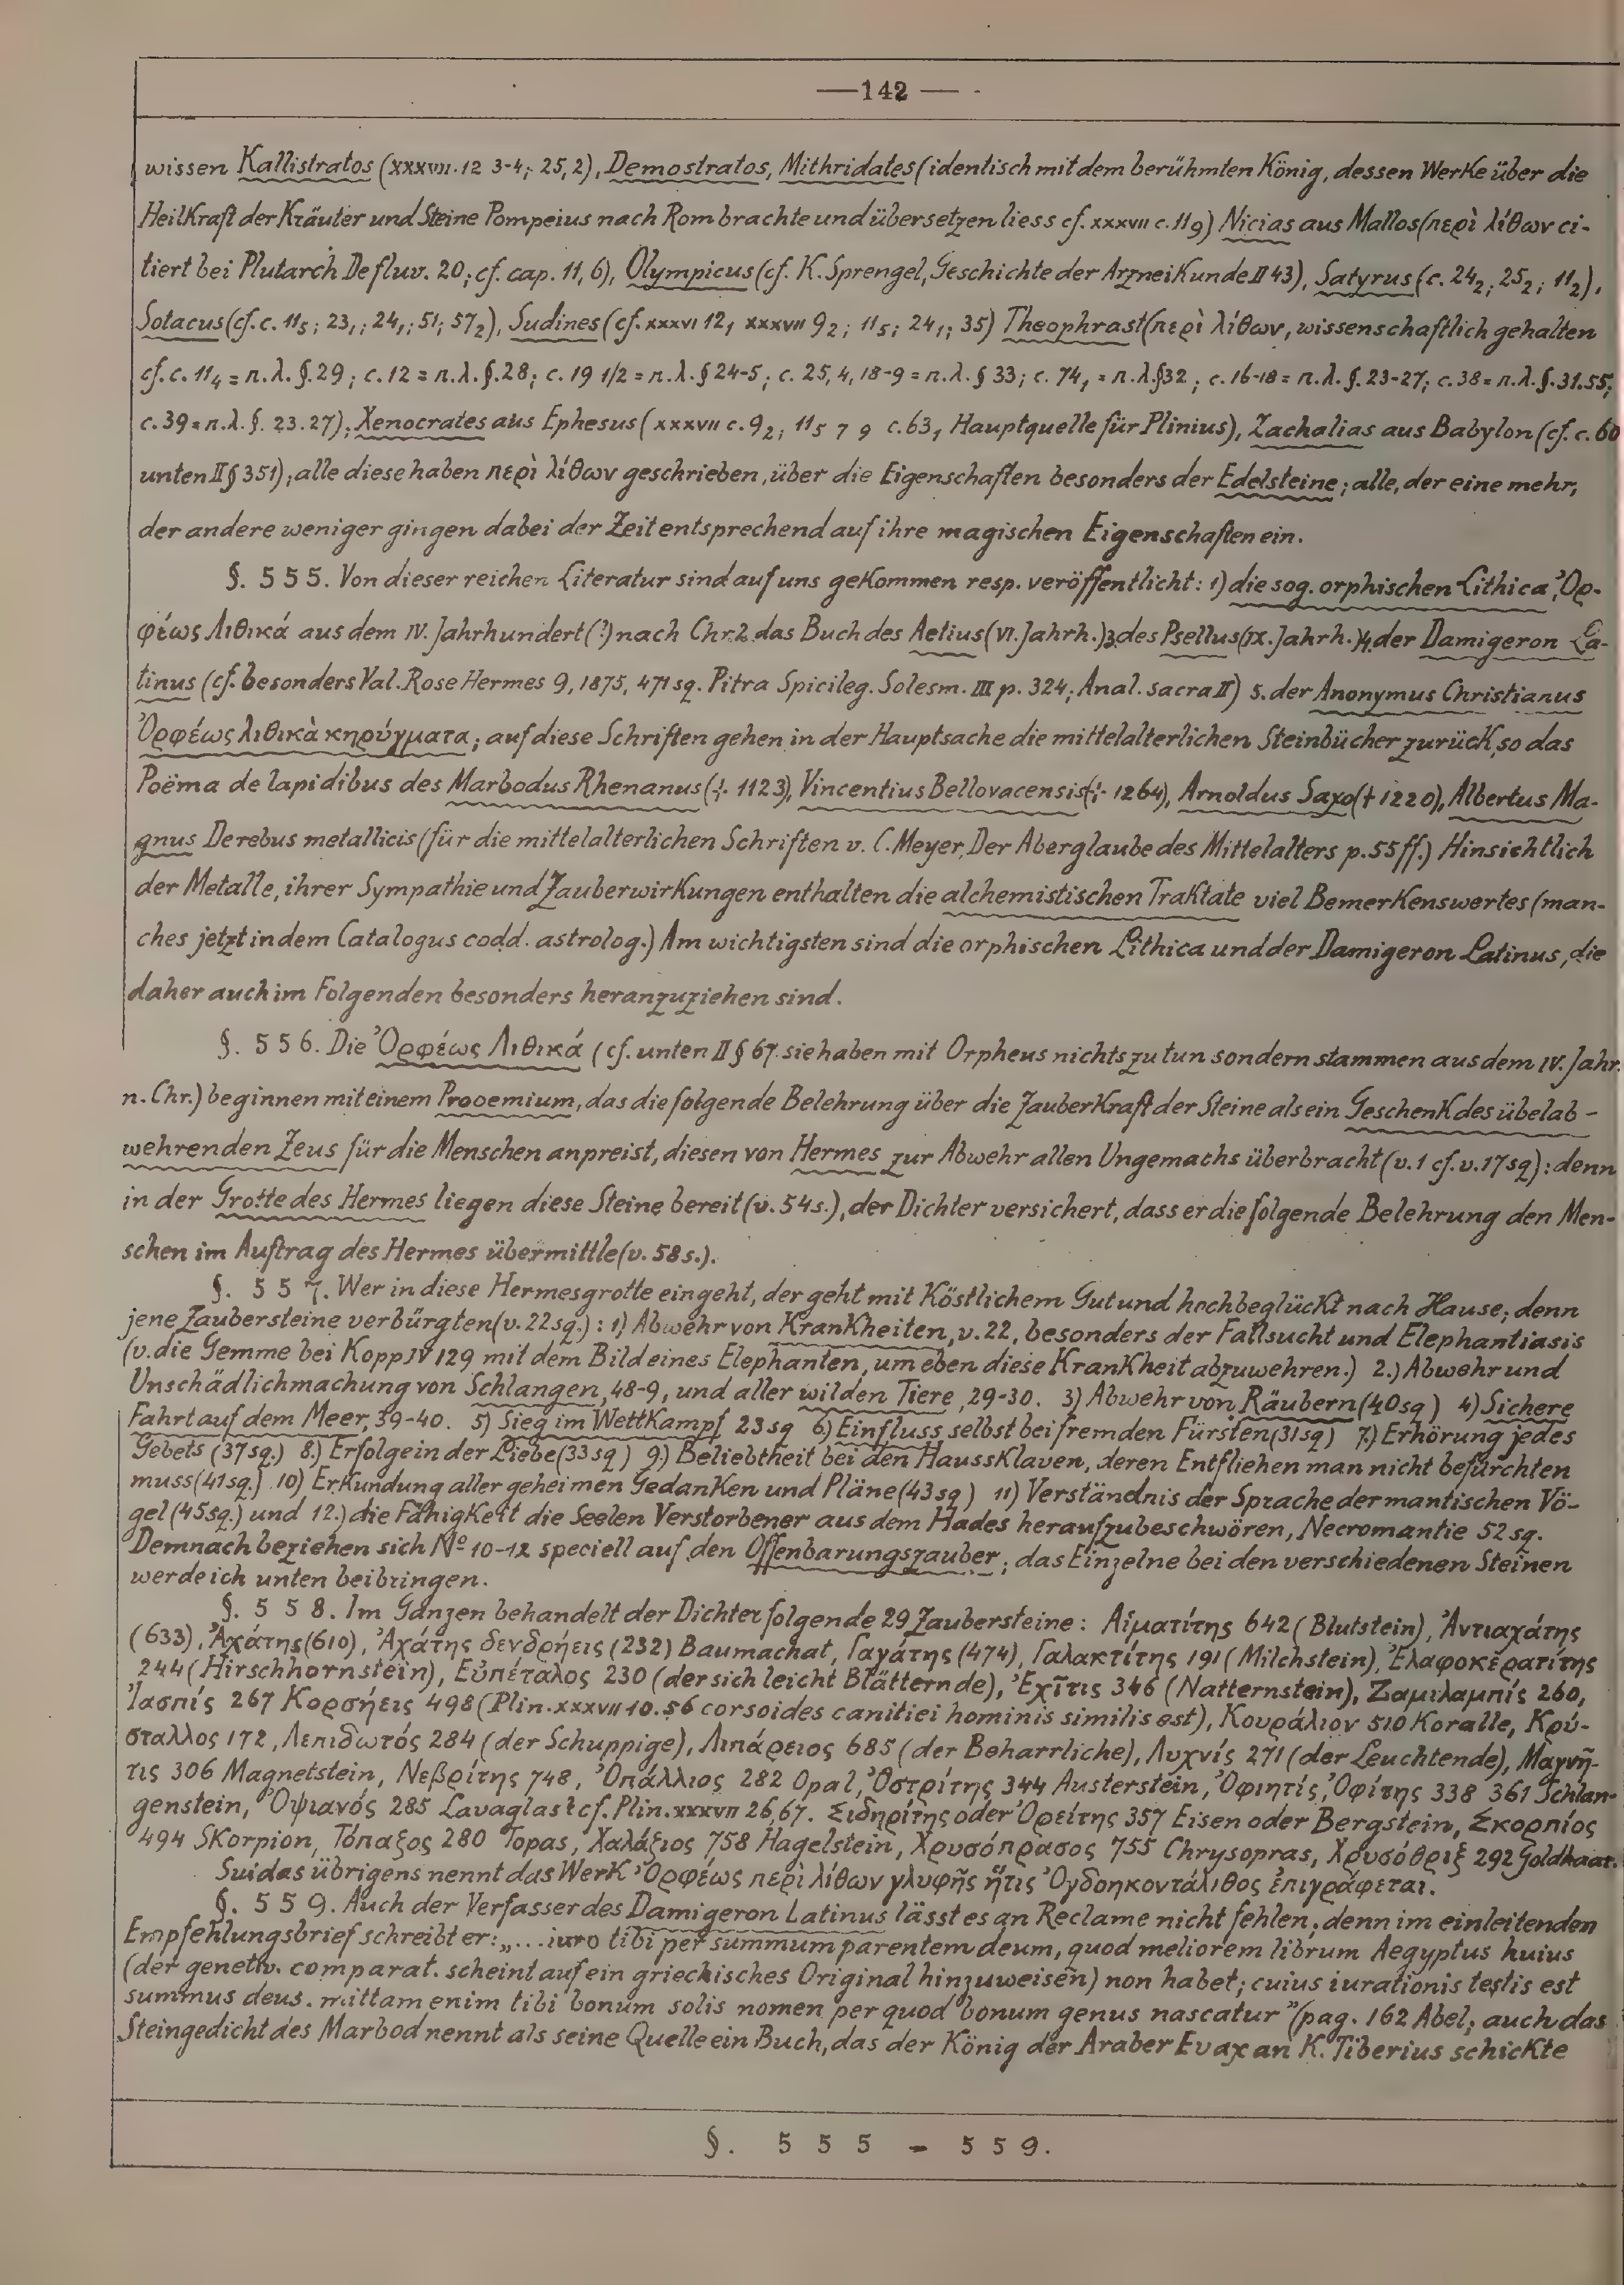 —142—
wissen Kallistratos (XXXVII. 12 3-4; 25,2), Demostratos, Mithridates (identisch mit dem berühmten König, dessen Werke über die
Heilkraft der Kräuter und Steine Pompeius nach Rom brachte und übersetzen liess cf. XXXVII c. 11 9) Nicias aus Mallos (περὶ λίθων ci-
tiert bei Plutarch De fluv. 20; cf. cap. 11, 6), Olympicus (cf. K. Sprengel, Geschichte der Arzneikunde II 43), Satyrus (c. 24 2; 25 2; 11 2),
Sotacus (cf. c. 11 5; 23 1; 24 1; 51; 57 2), Sudines (cf. XXXVI 12, XXXVII 9 2; 11 5; 24 1; 35) Theophrast (περὶ λίθων, wissenschaftlich gehalten
cf. c. 11 4 = π. λ. §. 29; c. 12 = π. λ. §. 28; c. 19 1/2 = π. λ. § 24-5; c. 25, 4, 18-9 = π. λ. § 33; c. 74 1 = π. λ. § 32; c. 16-18 = π. λ. §. 23-27; c. 38 = π. λ. §. 31. 55;
c. 39 = π. λ. §. 23. 27); Xenocrates aus Ephesus (XXXVII c. 9 2; 11 5 7 9 c. 63, Hauptquelle für Plinius), Zachalias aus Babylon (cf. c. 60
unten II § 351); alle diese haben περὶ λίθων geschrieben, über die Eigenschaften besonders der Edelsteine; alle, der eine mehr,
der andere weniger gingen dabei der Zeit entsprechend auf ihre magischen Eigenschaften ein.
§. 555. Von dieser reichen Literatur sind auf uns gekommen resp. veröffentlicht: 1) die sog. orphischen Lithica, Ὀρ-
φέως Λιθικά aus dem IV. Jahrhundert (?) nach Chr. 2. das Buch des Aetius (VI. Jahrh.) 3. des Psellus (IX. Jahrh.) 4. der Damigeron La-
tinus (cf. besonders Val. Rose Hermes 9, 1875, 471 sq. Pitra Spicileg. Solesm. III p. 324; Anal. sacra II) 5. der Anonymus Christianus
Ὀρφέως λιθικὰ κηρύγματα; auf diese Schriften gehen in der Hauptsache die mittelalterlichen Steinbücher zurück, so das
Poëma de lapidibus des Marbodus Rhenanus († 1123), Vincentius Bellovacensis († 1264), Arnoldus Saxo († 1220), Albertus Ma-
gnus De rebus metallicis (für die mittelalterlichen Schriften v. C. Meyer, Der Aberglaube des Mittelalters p. 55 ff.) Hinsichtlich
der Metalle, ihrer Sympathie und Zauberwirkungen enthalten die alchemistischen Traktate viel Bemerkenswertes (man-
ches jetzt in dem Catalogus codd. astrolog.) Am wichtigsten sind die orphischen Lithica und der Damigeron Latinus, die
daher auch im Folgenden besonders heranzuziehen sind.
§. 556. Die Ὀρφέως Λιθικά (cf. unten II § 67. sie haben mit Orpheus nichts zu tun sondern stammen aus dem IV. Jahr.
n. Chr.) beginnen mit einem Prooemium, das die folgende Belehrung über die Zauberkraft der Steine als ein Geschenk des übelab-
wehrenden Zeus für die Menschen anpreist, diesen von Hermes zur Abwehr allen Ungemachs überbracht (v. 1 cf. v. 17 sq): denn
in der Grotte des Hermes liegen diese Steine bereit (v. 54 s.), der Dichter versichert, dass er die folgende Belehrung den Men-
schen im Auftrag des Hermes übermittle (v. 58 s.).
§. 557. Wer in diese Hermesgrotte eingeht, der geht mit köstlichem Gut und hochbeglückt nach Hause; denn
jene Zaubersteine verbürgten (v. 22 sq.): 1) Abwehr von Krankheiten, v. 22, besonders der Fallsucht und Elephantiasis
(v. die Gemme bei Kopp IV 129 mit dem Bild eines Elephanten, um eben diese Krankheit abzuwehren.) 2.) Abwehr und
Unschädlichmachung von Schlangen, 48-9, und aller wilden Tiere, 29-30. 3) Abwehr von Räubern (40 sq) 4) Sichere
Fahrt auf dem Meer, 39-40. 5) Sieg im Wettkampf 23 sq 6) Einfluss selbst bei fremden Fürsten (31 sq) 7.) Erhörung jedes
Gebets (37 sq.) 8.) Erfolge in der Liebe (33 sq) 9.) Beliebtheit bei den Haussklaven, deren Entfliehen man nicht befürchten
muss (41 sq.) 10) Erkundung aller geheimen Gedanken und Pläne (43 sq) 11) Verständnis der Sprache der mantischen Vö-
gel (45 sq.) und 12.) die Fähigkeit die Seelen Verstorbener aus dem Hades heraufzubeschwören, Necromantie 52 sq.
Demnach beziehen sich No 10-12 speciell auf den Offenbarungszauber; das Einzelne bei den verschiedenen Steinen
werde ich unten beibringen.
§. 558. Im Ganzen behandelt der Dichter folgende 29 Zaubersteine: Αἱματίτης 642 (Blutstein), Ἀντιαχάτης
(633), Ἀχάτης (610), Ἀχάτης δενδρήεις (232) Baumachat, Γαγάτης (474), Γαλακτίτης 191 (Milchstein), Ἐλαφοκερατίτης
244 (Hirschhornstein), Εὐπέταλος 230 (der sich leicht Blätternde), Ἐχῖτις 346 (Natternstein), Ζαμιλαμπίς 260,
Ἰασπίς 267 Κορσήεις 498 (Plin. XXXVII 10. 56 corsoides canitiei hominis similis est), Κουράλιον 510 Koralle, Κρύ-
σταλλος 172, Λεπιδωτός 284 (der Schuppige), Λιπάρειος 685 (der Beharrliche), Λυχνίς 271 (der Leuchtende), Μαγνῆ-
τις 306 Magnetstein, Νεβρίτης 748, Ὀπάλλιος 282 Opal, Ὀστρίτης 344 Austerstein, Ὀφιητίς, Ὀφίτης 338 361 Schlan-
genstein, Ὀψιανός 285 Lavaglas? cf. Plin. XXXVII 26, 67. Σιδηρίτης oder Ὀρείτης 357 Eisen oder Bergstein, Σκορπίος
494 Skorpion, Τόπαξος 280 Topas, Χαλάξιος 758 Hagelstein, Χρυσόπρασος 755 Chrysopras, Χρυσόθριξ 292 Goldhaar.
Suidas übrigens nennt das Werk Ὀρφέως περὶ λίθων γλυφῆς ἥτις Ὀγδοηκοντάλιθος ἐπιγράφεται.
§. 559. Auch der Verfasser des Damigeron Latinus lässt es an Reclame nicht fehlen; denn im einleitenden
Empfehlungsbrief schreibt er: „... iuro tibi per summum parentem deum, quod meliorem librum Aegyptus huius
(der genetiv. comparat. scheint auf ein griechisches Original hinzuweisen) non habet; cuius iurationis testis est
summus deus. mittam enim tibi bonum solis nomen per quod bonum genus nascatur” (pag. 162 Abel; auch das
Steingedicht des Marbod nennt als seine Quelle ein Buch, das der König der Araber Evax an K. Tiberius schickte
§. 555 - 559.